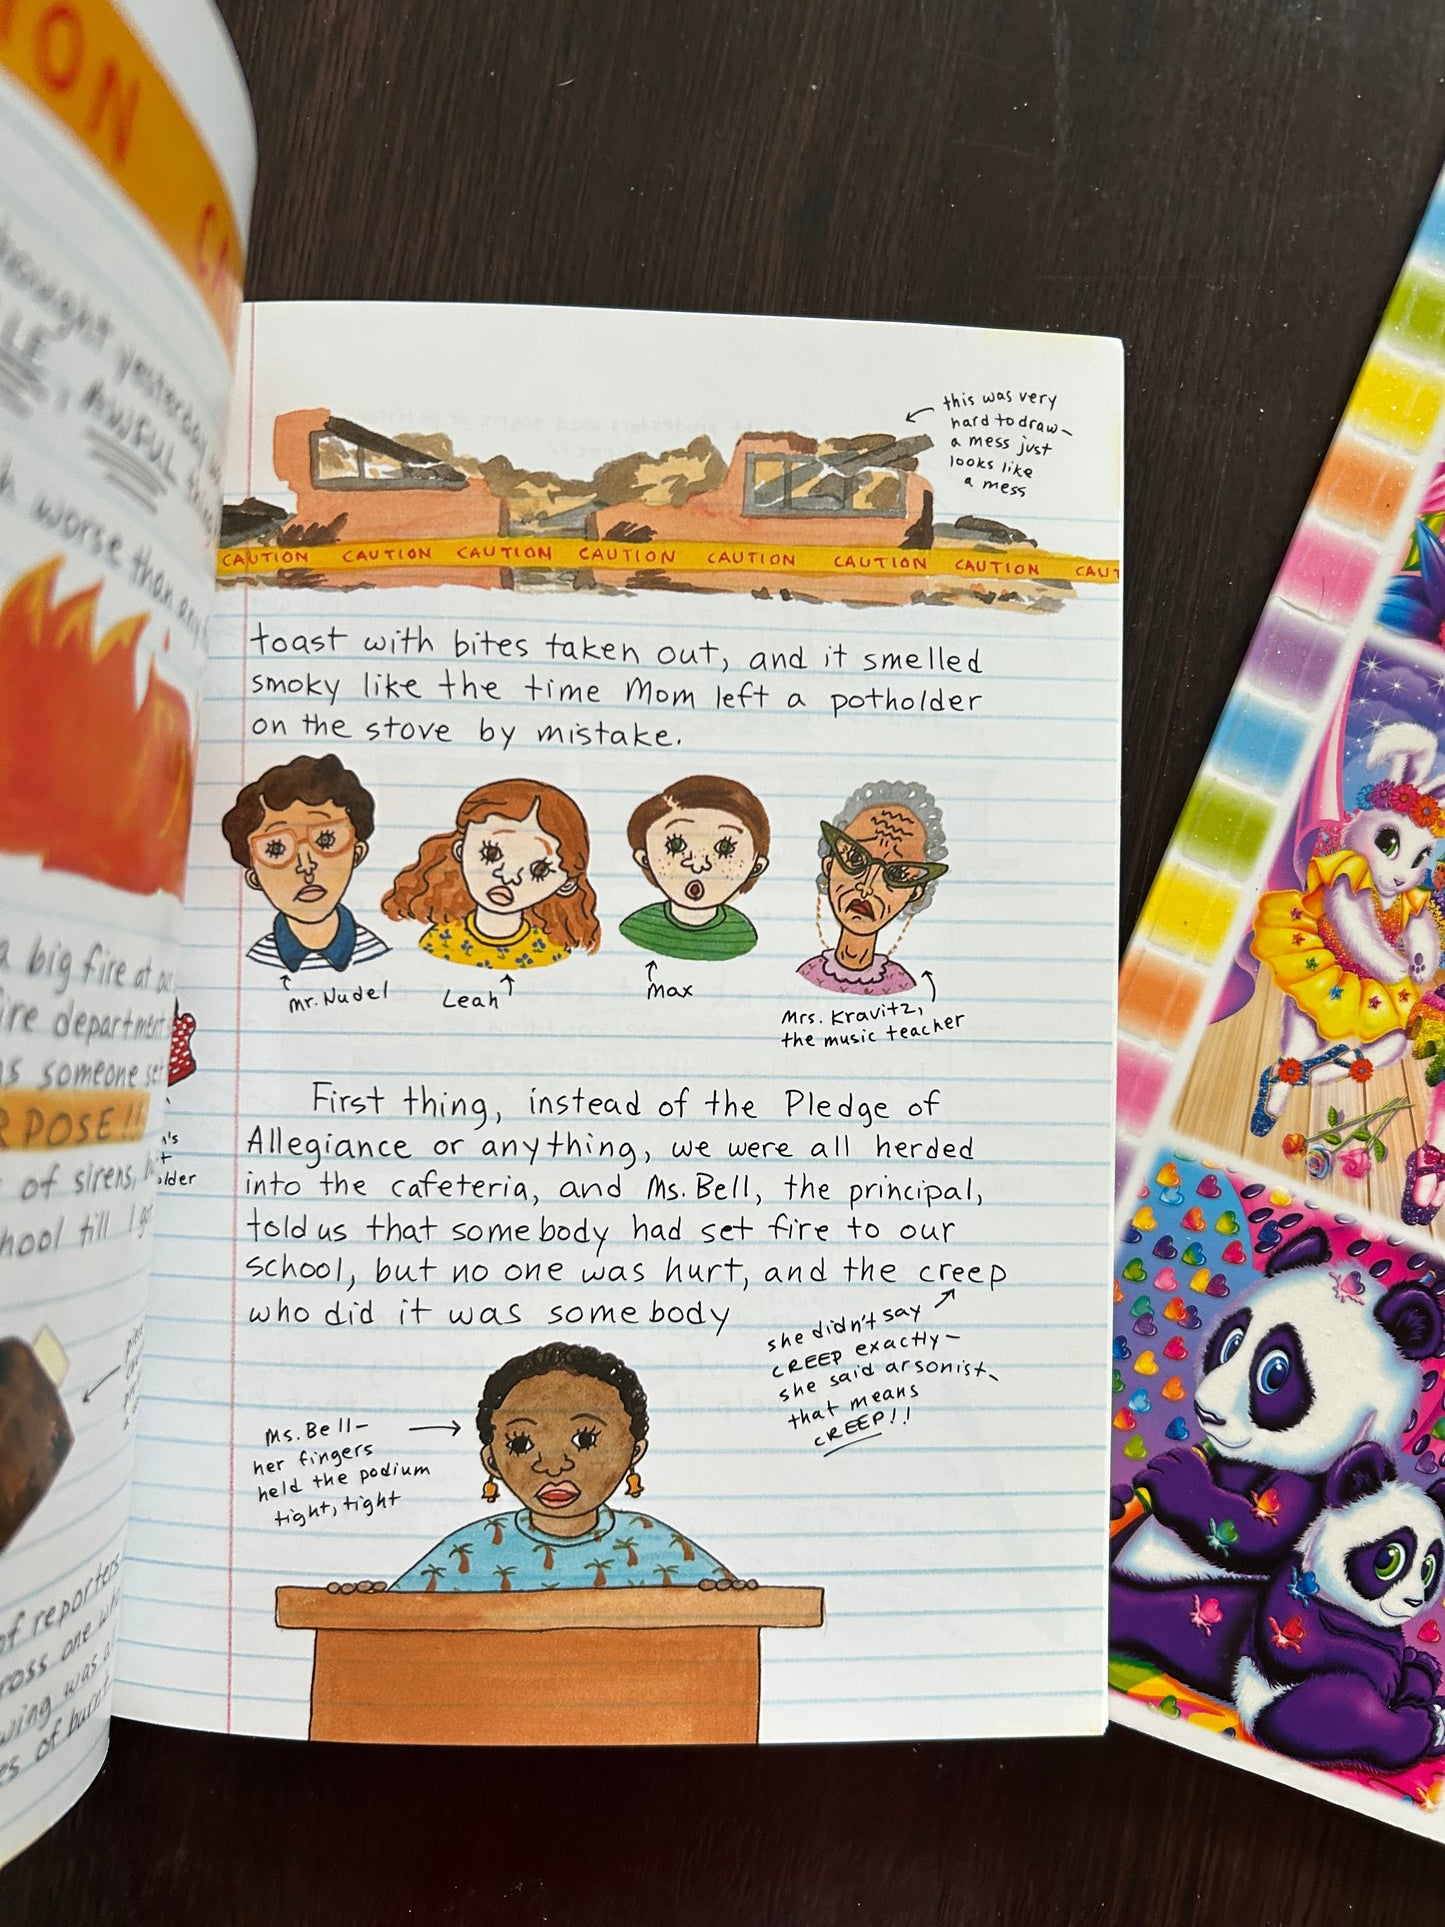 ION
CA
thought yesterday w
LE, AWFUL
worse than any
a big fire at
fire department
someone set
RPOSE!!
of sirens,
till I g
of reporters
cross one wh
wing was a
of burnt
older
this was very
hard to draw—
a mess just
looks like
a mess
CAUTION CAUTION CAUTION CAUTION CAUTION CAUTION CAUTION CAUT
toast with bites taken out, and it smelled
smoky like the time Mom left a potholder
on the stove by mistake.
Mr. Nudel
Leah
Max
Mrs. Kravitz,
the music teacher
First thing, instead of the Pledge of
Allegiance or anything, we were all herded
into the cafeteria, and Ms. Bell, the principal,
told us that somebody had set fire to our
school, but no one was hurt, and the creep
who did it was somebody
she didn't say
CREEP exactly—
she said arsonist—
that means
CREEP!!
Ms. Bell—
her fingers
held the podium
tight, tight